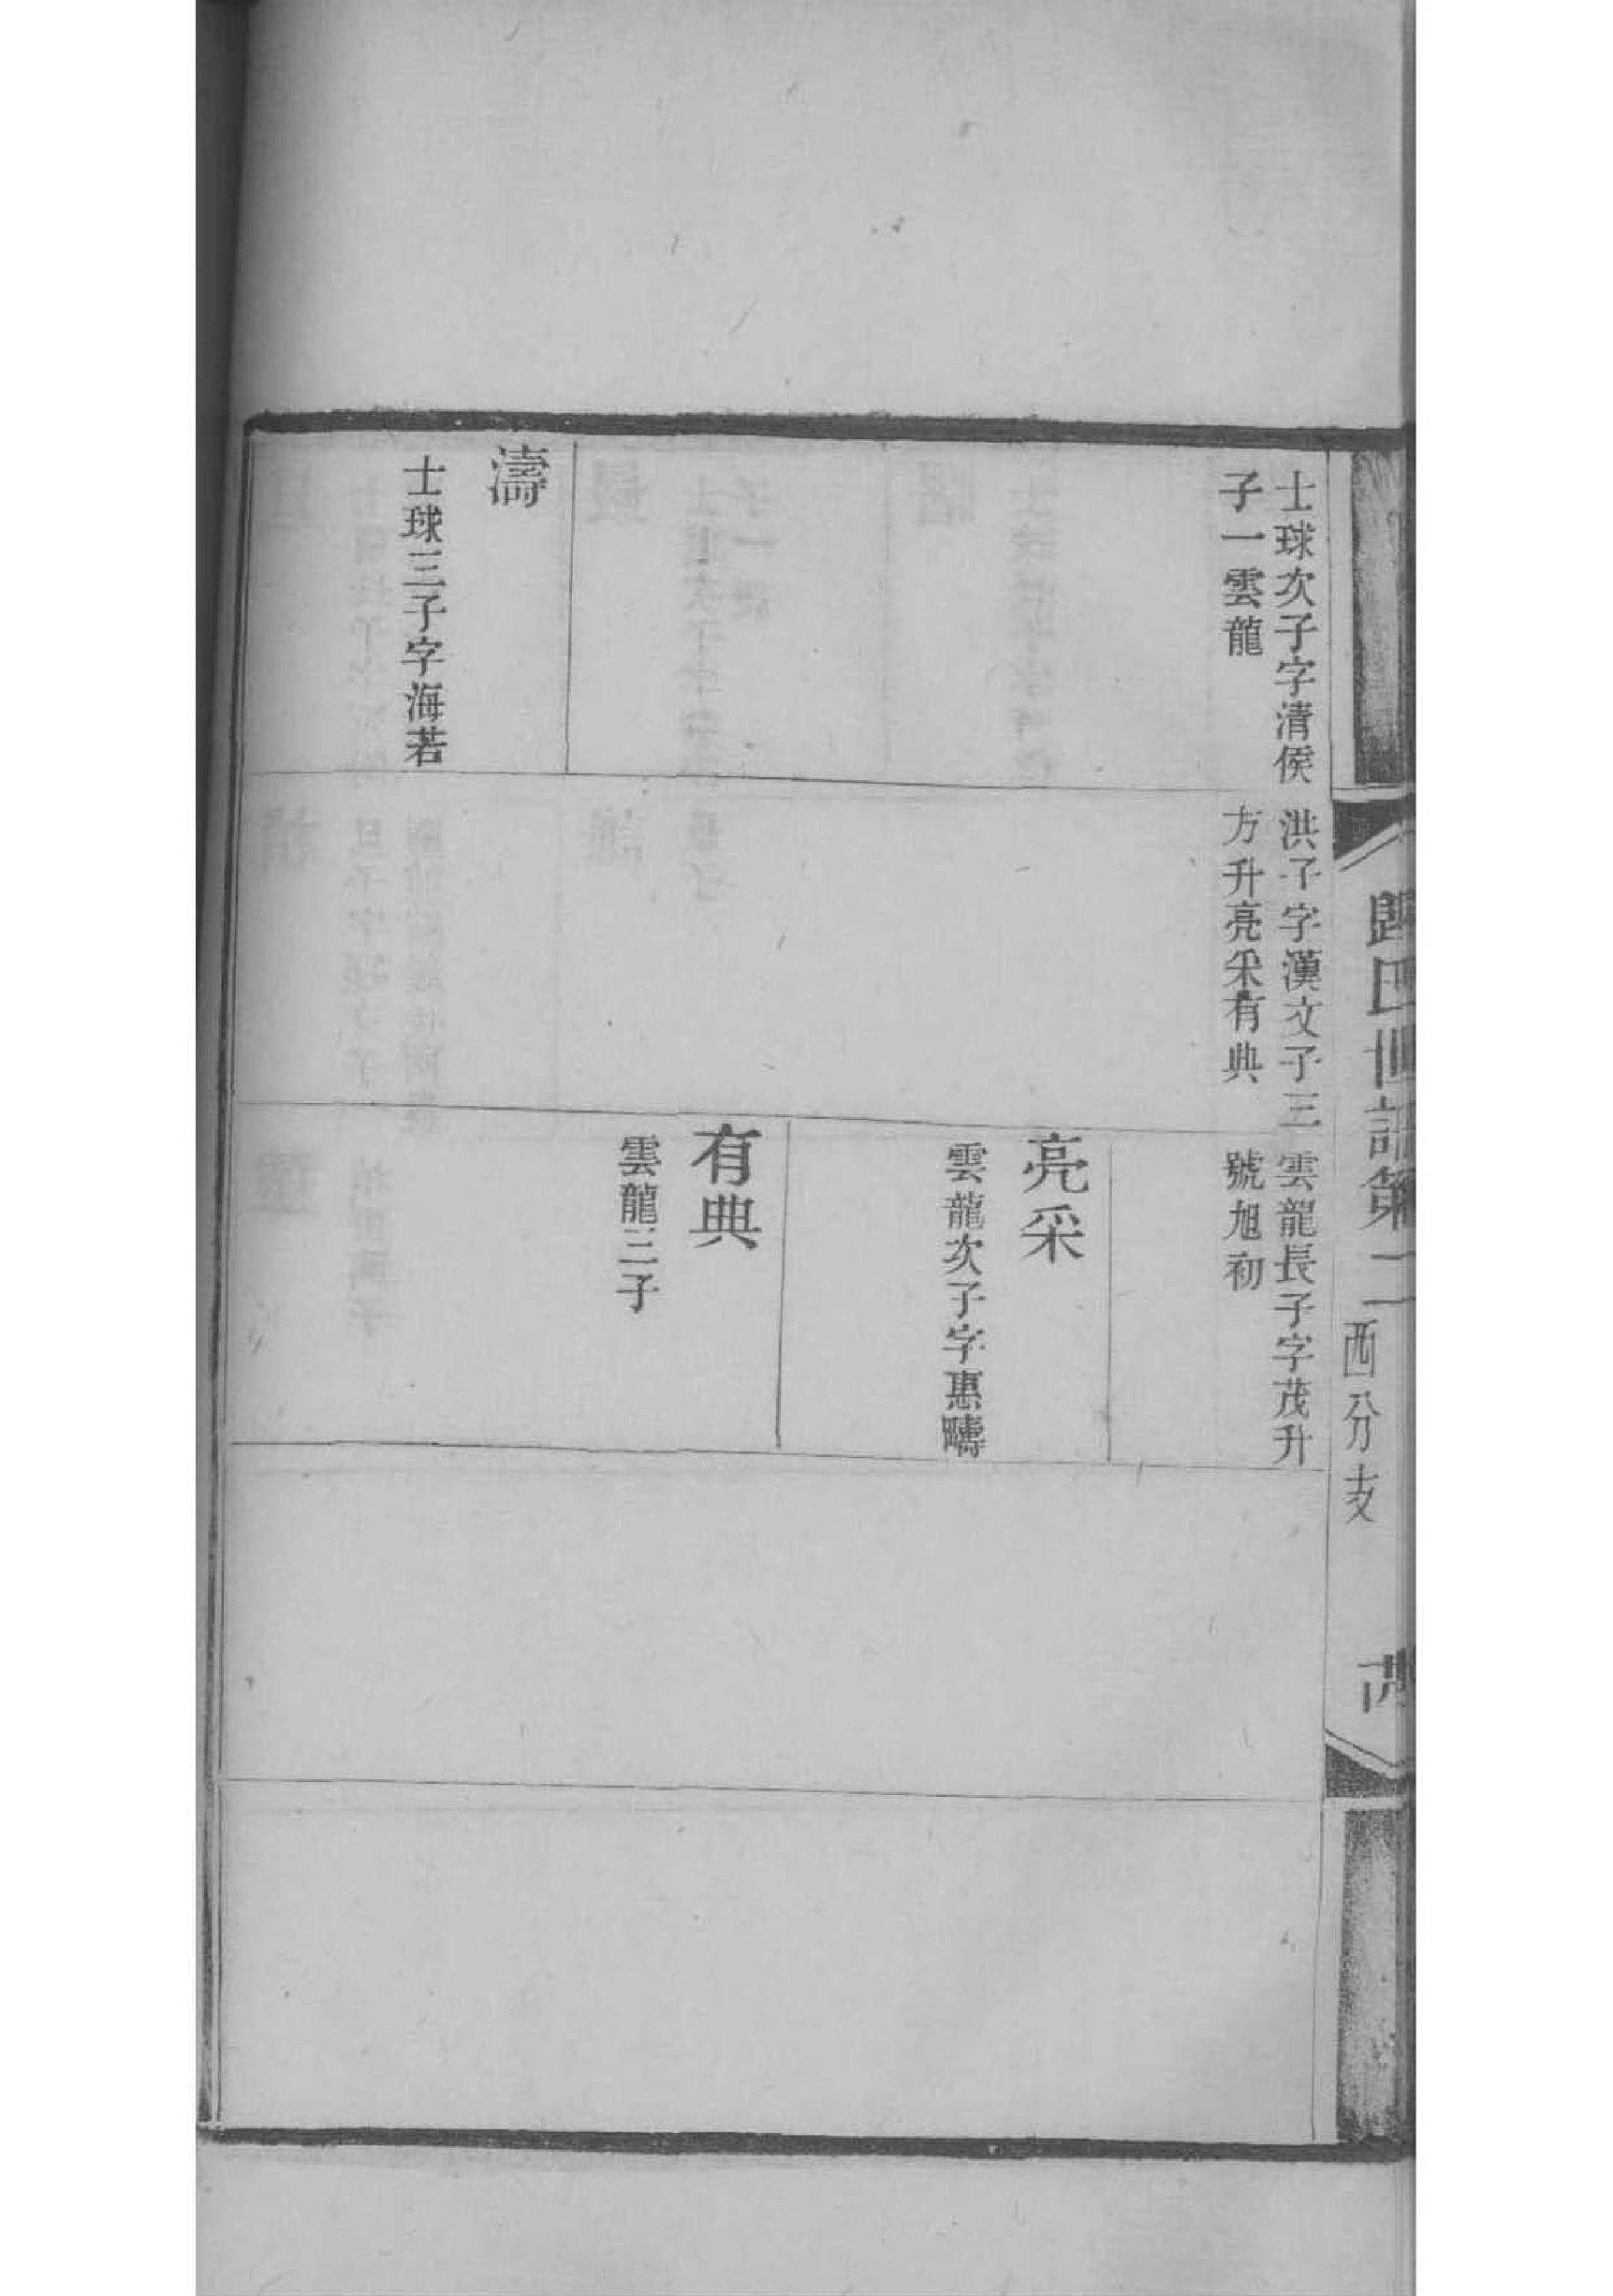 歸氏世譜第二
西分支
士球次子字清侯
子一雲龍
濤
士球三子字海若
洪子字漢文子三
方升亮采有典
雲龍長子字茂升
號旭初
亮采
雲龍次子字惠疇
有典
雲龍三子